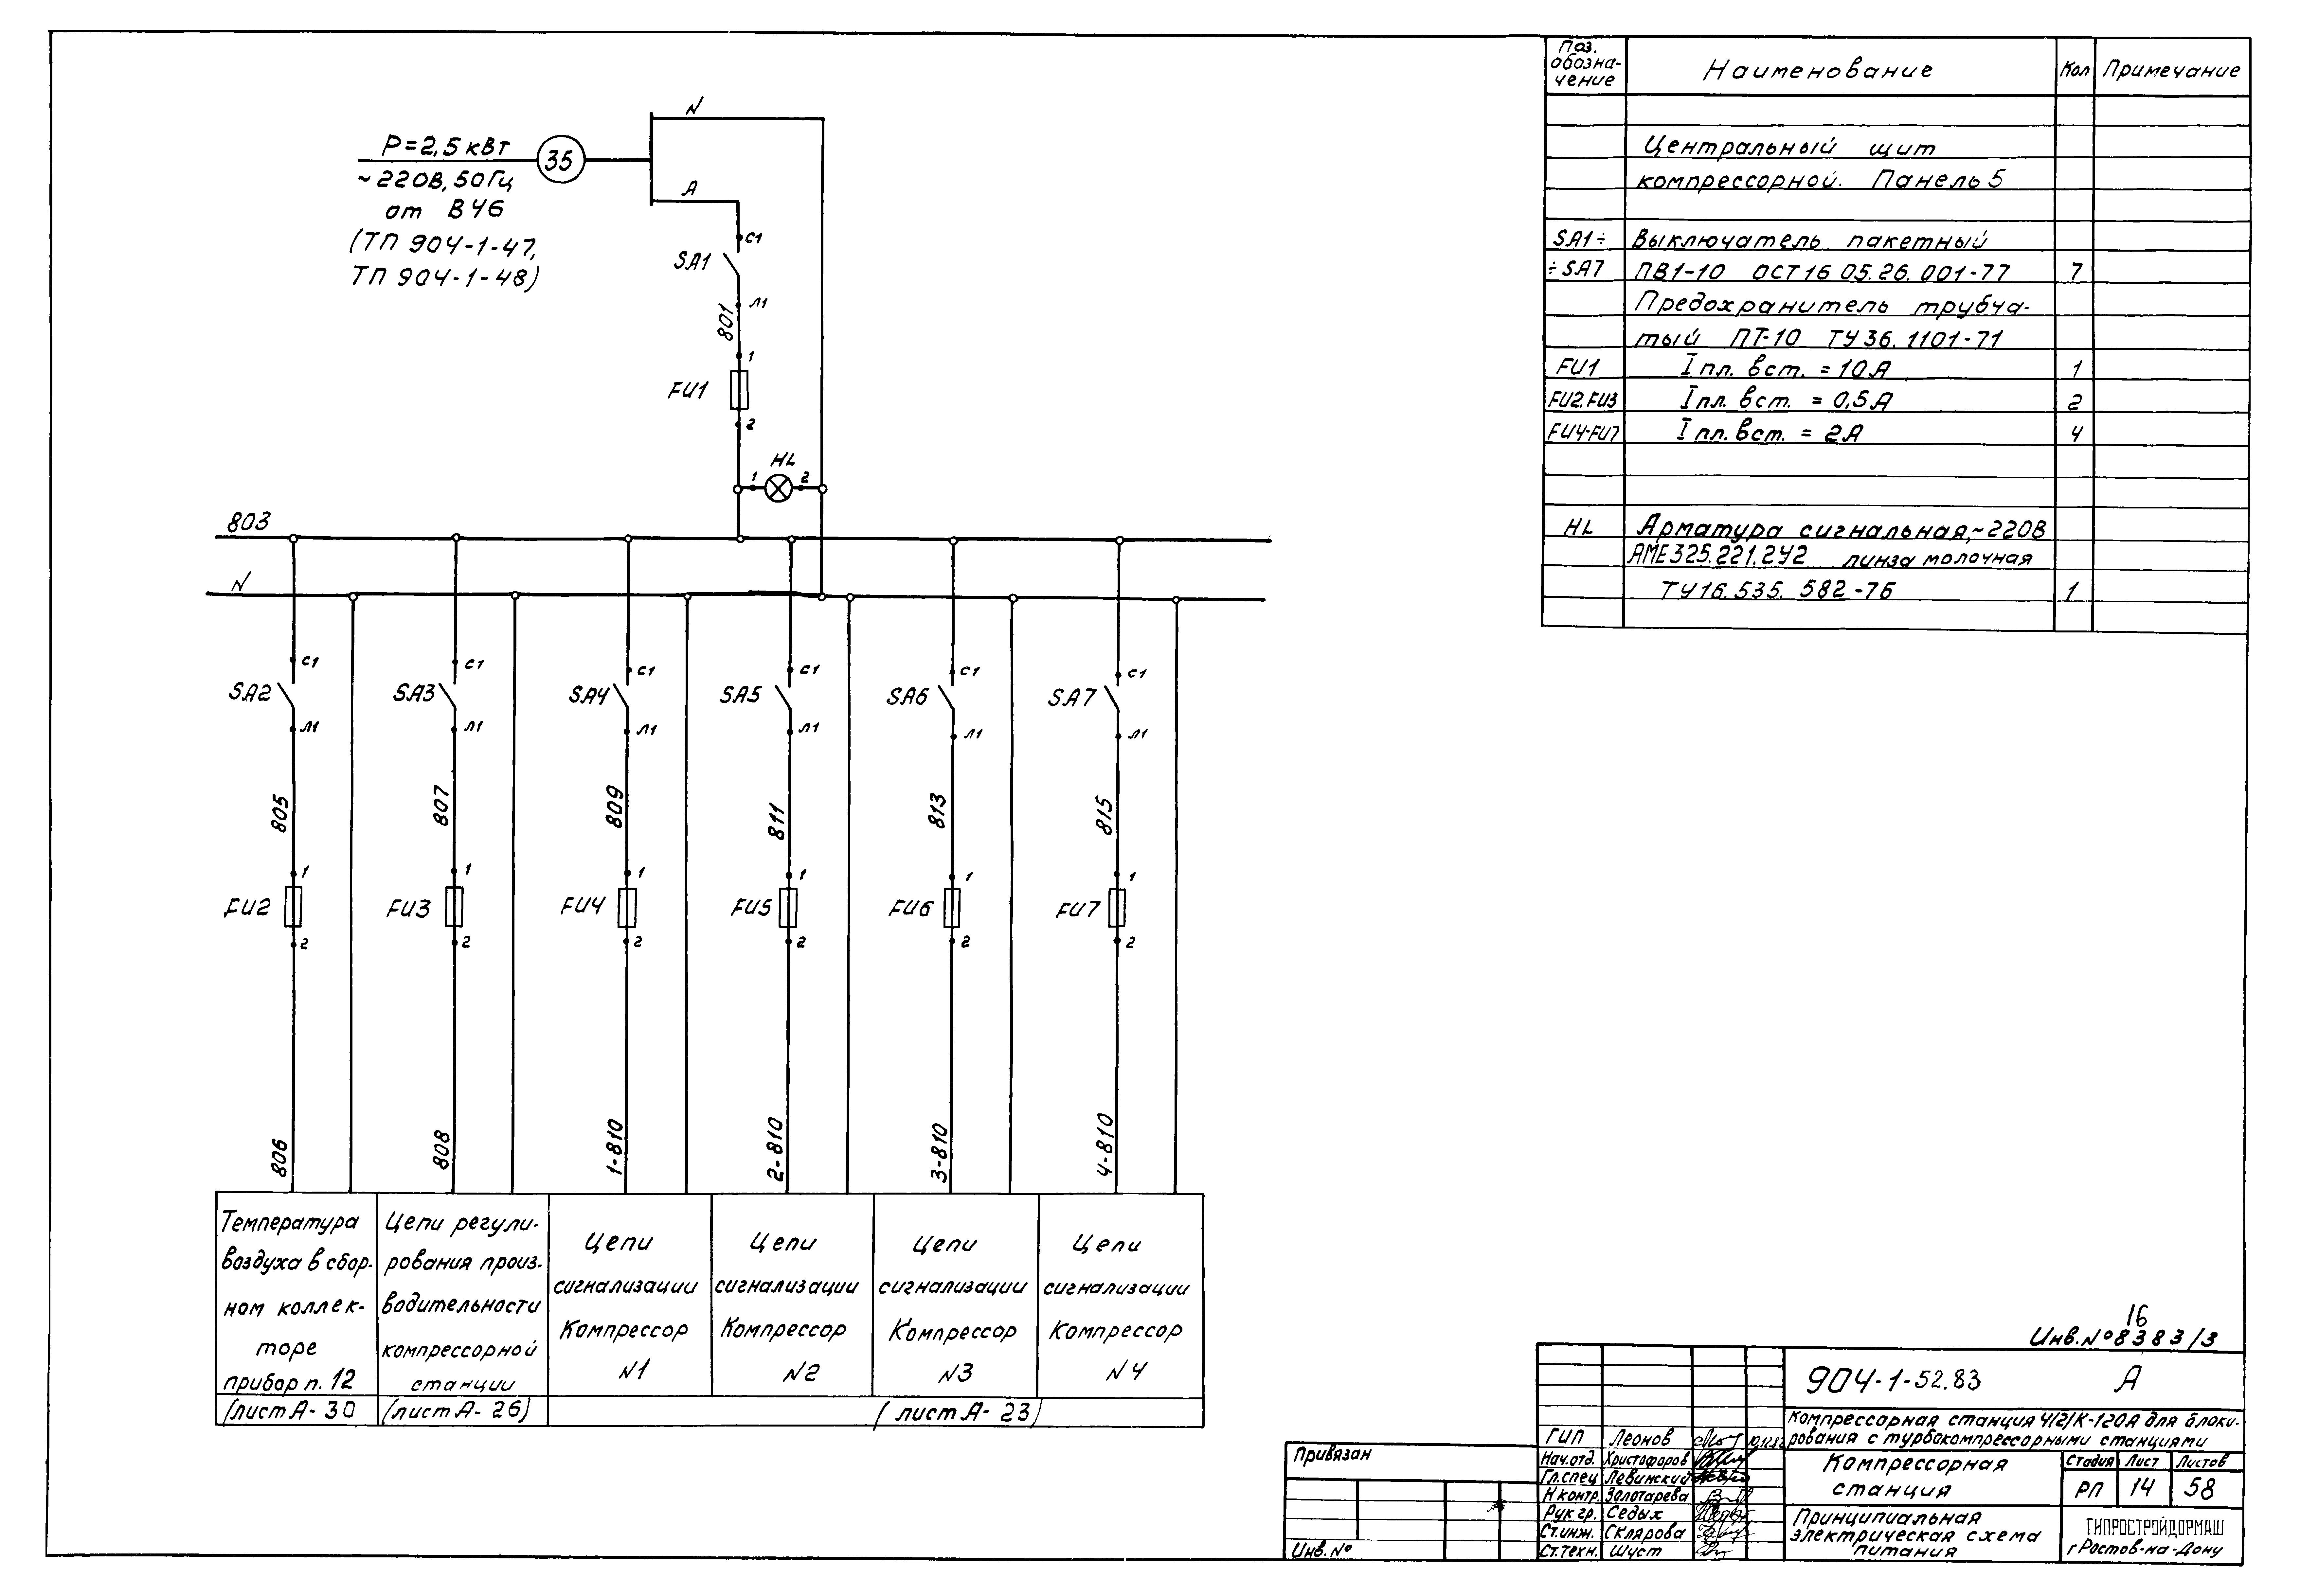 P=2,5 кВт
35
~220В, 50Гц
от ВУ6
(ТП 904-1-47,
ТП 904-1-48)
N
А
С1
SA1
Л1
801
1
FU1
2
HL
1 2
803
N
С1 С1 С1 С1 С1 С1
SA2 SA3 SA4 SA5 SA6 SA7
Л1 Л1 Л1 Л1 Л1 Л1
805 807 809 811 813 815
1 1 1 1 1 1
FU2 FU3 FU4 FU5 FU6 FU7
2 2 2 2 2 2
806 808 1-810 2-810 3-810 4-810
Температура
воздуха в сбор-
ном коллек-
торе
прибор п. 12
(лист А-30
Цепи регули-
рования произ-
водительности
компрессорной
станции
(лист А-26)
Цепи
сигнализации
Компрессор
N1
Цепи
сигнализации
Компрессор
N2
Цепи
сигнализации
Компрессор
N3
Цепи
сигнализации
Компрессор
N4
(лист А-23)
Поз.
обозна-
чение
Наименование
Кол
Примечание
Центральный щит
компрессорной. Панель 5
SA1÷ Выключатель пакетный
÷SA7 ПВ1-10 ОСТ16 05.26.001-77 7
Предохранитель трубча-
тый ПТ-10 ТУ36.1101-71
FU1 Iпл. вст. = 10А 1
FU2,FU3 Iпл. вст. = 0,5А 2
FU4-FU7 Iпл. вст. = 2А 4
HL Арматура сигнальная,~220В
АМЕ325.221.2У2 линза молочная
ТУ16.535.582-76 1
16
Инв.№8383/3
904-1-52.83 А
Компрессорная станция 4/2/К-120А для блоки-
рования с турбокомпрессорными станциями
Компрессорная
станция
Стадия Лист Листов
РП 14 58
Принципиальная
электрическая схема
питания
ГИПРОСТРОЙДОРМАШ
г Ростов-на-Дону
ГИП Леонов
Нач.отд. Христофоров
Гл.спец Левинский
Н контр. Золотарева
Рук гр. Седых
Ст.инж. Склярова
Ст.техн. Шуст
Привязан
Инв.№